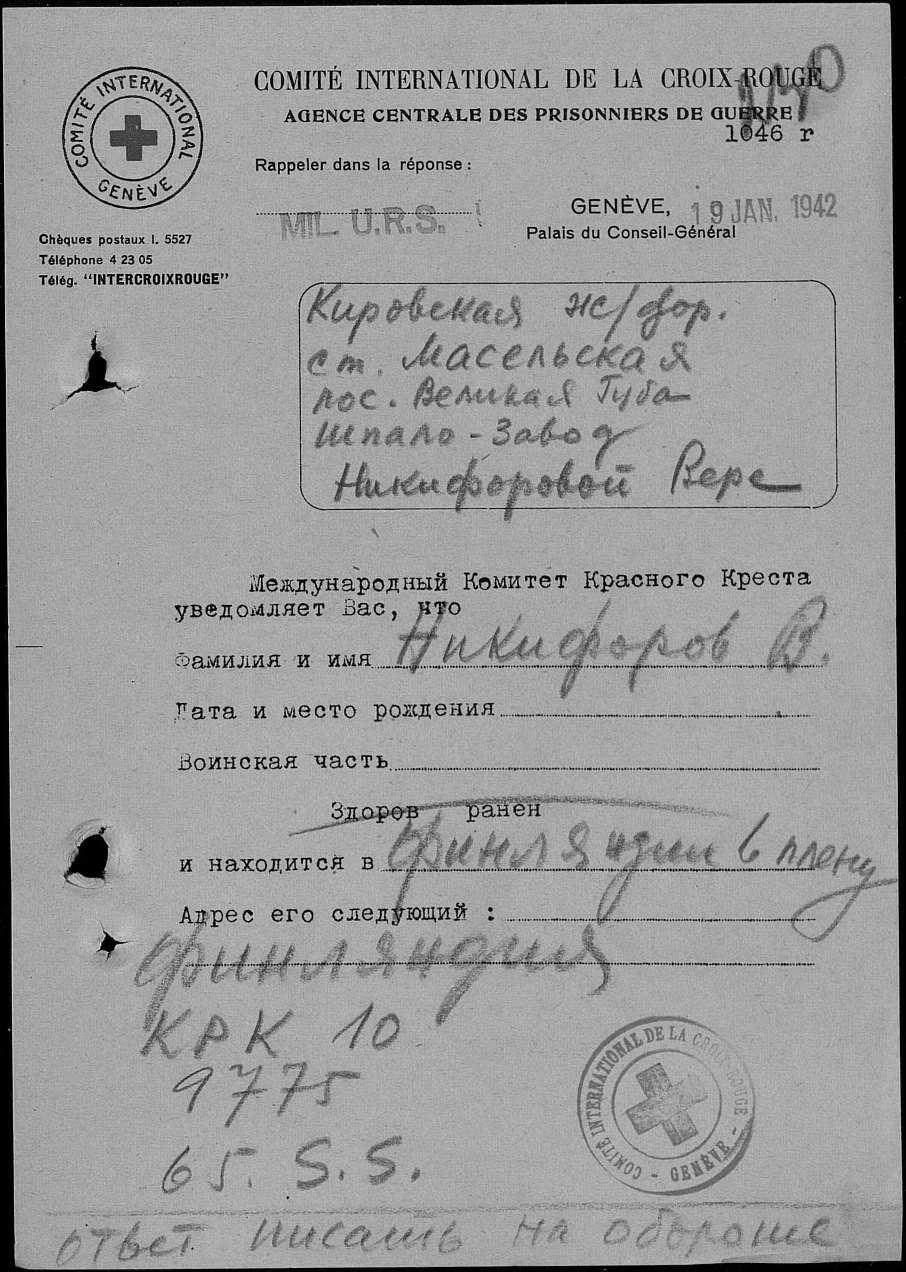 COMITÉ INTERNATIONAL GENÈVE
COMITÉ INTERNATIONAL DE LA CROIX-ROUGE
AGENCE CENTRALE DES PRISONNIERS DE GUERRE
1046 r
Rappeler dans la réponse :
MIL. U.R.S.
GENÈVE, 19 JAN. 1942
Palais du Conseil-Général
Chèques postaux I. 5527
Téléphone 4 23 05
Télég. “INTERCROIXROUGE”
Кировская ж/дор.
ст. Масельская
пос. Великая Губа
Шпало-Завод
Никифоровой Вере
Международный Комитет Красного Креста
уведомляет Вас, что
Фамилия и имя Никифоров В.
Дата и место рождения
Воинская часть
Здоров ранен
и находится в Финляндии в плену
Адрес его следующий :
Финляндия
КРК 10
9775
65. S.S.
COMITÉ INTERNATIONAL DE LA CROIX-ROUGE - GENÈVE -
ответ писать на обороте